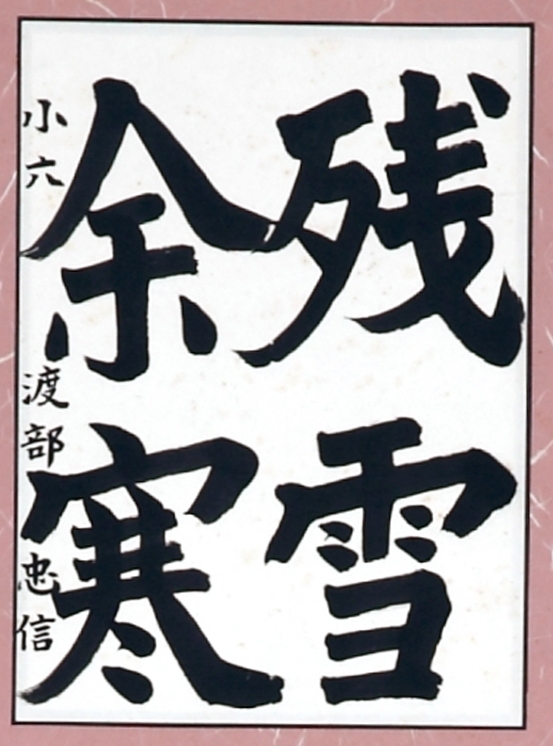 残雪
余寒
小六 渡部忠信